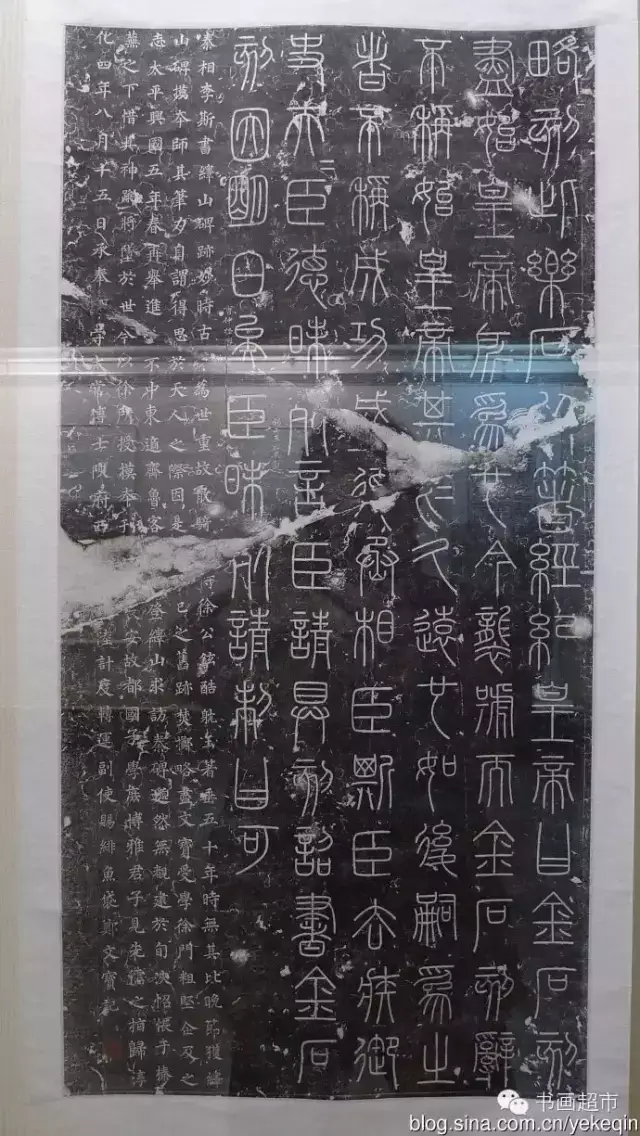 略刻此樂石以著經紀皇帝曰金石刻
盡始皇帝所為也今襲號而金石刻辭
不稱始皇帝其於久遠也如後嗣為之
者不稱成功盛德丞相臣斯臣去疾御
史夫=臣德昧死言臣請具刻詔書金石
刻因明白矣臣昧死請制曰可
秦相李斯書繹山碑跡妙時古為世重故散騎侍徐公鉉酷耽玉箸垂五十年時無其比晚節獲繹
山碑摸本師其筆力自謂得思於天人之際因是己之舊跡焚擲略盡文寶受學徐門粗堅企及之
志太平興國五年春再舉進不中東適齊魯客登繹山求訪秦碑邈然無覩逮於旬浹悵悵于榛
蕪之下惜其神蹤將墜於世今以徐所授摸本刊長安故都國子學庶博雅君子見先儒之指歸淳
化四年八月十五日承奉守太常博士陝府西陸計度轉運副使賜緋魚袋鄭文寶記
书画超市
blog.sina.com.cn/yekeqin